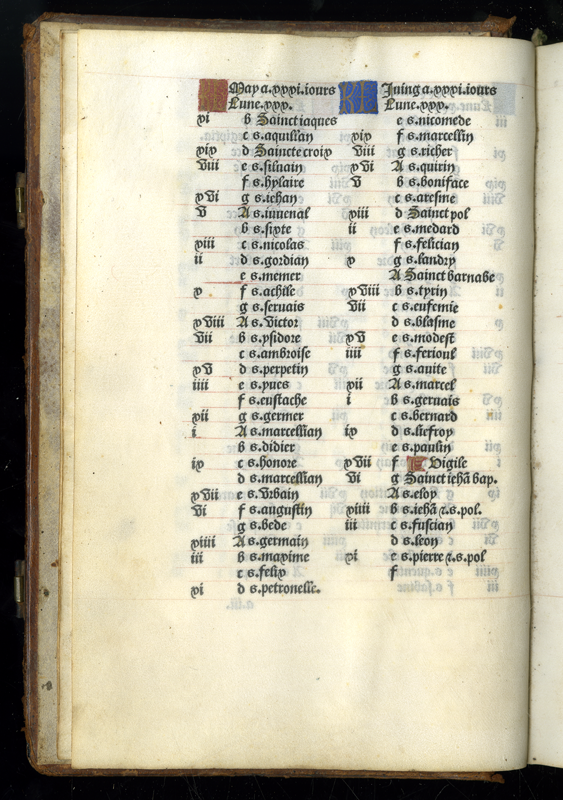 May a.xxxi.iours
Lune.xxx.
xi b Sainct iaques
c s.aquillan
xix d Saincte croix
viii e s.siluain
f s.hylaire
xvi g s.iehan
v A s.iuuenal
b s.sixte
xiii c s.nicolas
ii d s.gordian
e s.memer
x f s.achile
g s.seruais
xviii A s.victor
vii b s.ysidore
c s.ambroise
xv d s.perpetin
iiii e s.yues
f s.eustache
xii g s.germer
i A s.marcellian
b s.didier
ix c s.honore
d s.marcellian
xvii e s.vrbain
vi f s.augustin
g s.bede
xiiii A s.germain
iii b s.maxime
c s.felix
xi d s.petronelle.
KL Iuing a.xxxi.iours
Lune.xxx.
e s.nicomede
xix f s.marcellin
viii g s.richer
xvi A s.quirin
v b s.boniface
c s.aresme
xiii d Sainct pol
ii e s.medard
f s.felician
x g s.landry
A Sainct barnabe
xviii b s.tyrin
vii c s.eufemie
d s.blasme
xv e s.modest
iiii f s.ferioul
g s.auite
xii A s.marcel
i b s.geruais
c s.bernard
ix d s.liefroy
e s.paulin
xvii f Vigile
vi g Sainct iehã bap.
A s.eloy
xiiii b s.iehã ⁊.s.pol.
iii c s.fuscian
d s.leon
xi e s.pierre ⁊.s.pol
f